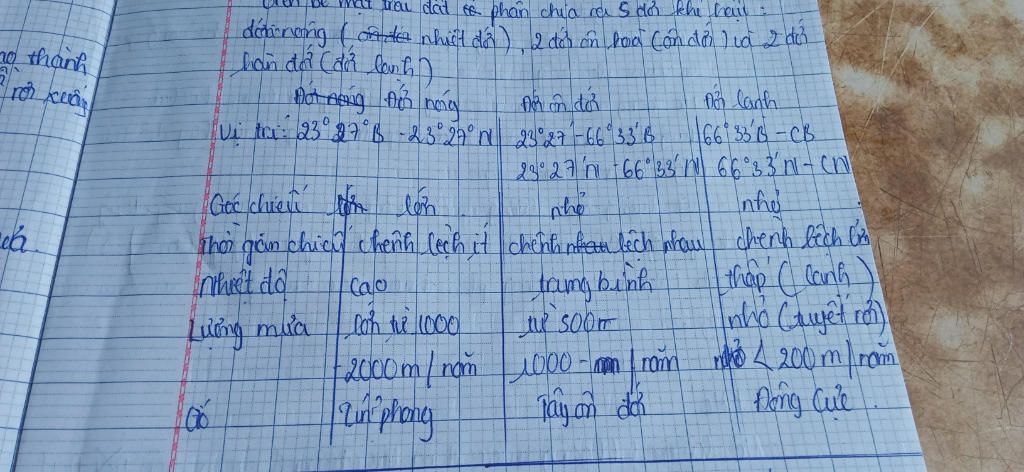 trên bề mặt trái đất phân chia ra 5 đới khí hậu :
đới nóng ( nhiệt đới ) , 2 đới ôn hoà (ôn đới ) và 2 đới
hàn đới (đới lạnh )
Đới nóng Đới ôn đới Đới lạnh
Vị trí : 23°27°B - 23°27°N 23°27'-66°33'B 66°33'B - CB
23°27'N - 66°33'N 66°33'N - CN
Góc chiếu lớn nhỏ nhỏ
Thời gian chiếu chênh lệch ít chênh lệch nhau chênh lệch lớn
nhiệt độ cao trung bình thấp ( lạnh )
Lượng mưa lớn từ 1000 từ 500m nhỏ (tuyết rơi)
-2000m/năm 1000 - /năm < 200m/năm
Gió Tín phong Tây ôn đới Đông Cực .
thành
rơi xuống